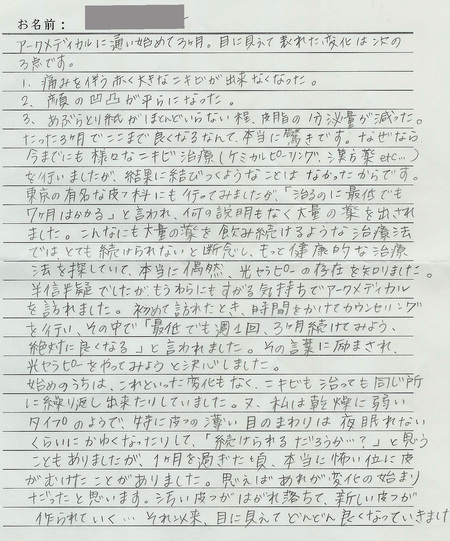 お名前：
アークメディカルに通い始めて3ヶ月。目に見えて表れた変化は次の
3点です。
1. 痛みを伴う赤く大きなニキビが出来なくなった。
2. 顔の凹凸が平らになった。
3. あぶらとり紙がほとんどいらない程、皮脂の分泌量が減った。
たった3ヶ月でここまで良くなるなんて、本当に驚きです。なぜなら
今までにも様々なニキビ治療(ケミカルピーリング、漢方薬etc…)
を行いましたが、結果に結びつくようなことはなかったからです。
東京の有名な皮フ科にも行ってみましたが、「治るのに最低でも
7ヶ月はかかる」と言われ、何の説明もなく大量の薬を出され
ました。こんなにも大量の薬を飲み続けるような治療法
では、とても続けられないと断念し、もっと健康的な治療
法を探していて、本当に偶然、光セラピーの存在を知りました。
半信半疑でしたが、もうわらにもすがる気持ちでアークメディカル
を訪れました。初めて訪れたとき、時間をかけてカウンセリング
を行い、その中で「最低でも週1回、3ヶ月続けてみよう、
絶対に良くなる」と言われました。その言葉に励まされ、
光セラピーをやってみようと決心しました。
始めのうちは、これといった変化もなく、ニキビも治っても同じ所
に繰り返し出来たりしていました。又、私は乾燥に弱い
タイプのようで、特に皮フの薄い目のまわりは夜眠れない
くらいにかゆくなったりして、「続けられるだろうか…？」と思う
こともありましたが、1ヶ月を過ぎた頃、本当に怖い位に皮
がむけたことがありました。思えばあれが変化の始まり
だったと思います。汚い皮フがはがれ落ちて、新しい皮フが
作られていく…それ以来、目に見えてどんどん良くなっていきまし